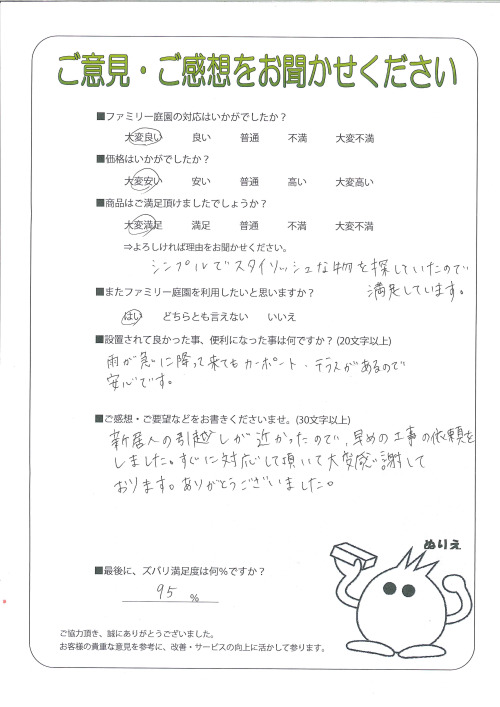 ご意見・ご感想をお聞かせください
■ファミリー庭園の対応はいかがでしたか？
大変良い 良い 普通 不満 大変不満
■価格はいかがでしたか？
大変安い 安い 普通 高い 大変高い
■商品はご満足頂けましたでしょうか？
大変満足 満足 普通 不満 大変不満
⇒よろしければ理由をお聞かせください。
シンプルでスタイリッシュな物を探していたので
満足しています。
■またファミリー庭園を利用したいと思いますか？
はい どちらとも言えない いいえ
■設置されて良かった事、便利になった事は何ですか？(20文字以上)
雨が急に降って来てもカーポート・テラスがあるので
安心です。
■ご感想・ご要望などをお書きくださいませ。(30文字以上)
新居への引越しが近かったので、早めの工事の依頼を
しました。すぐに対応して頂いて大変感謝して
おります。ありがとうございました。
ぬりえ
■最後に、ズバリ満足度は何％ですか？
95 %
ご協力頂き、誠にありがとうございました。
お客様の貴重な意見を参考に、改善・サービスの向上に活かして参ります。